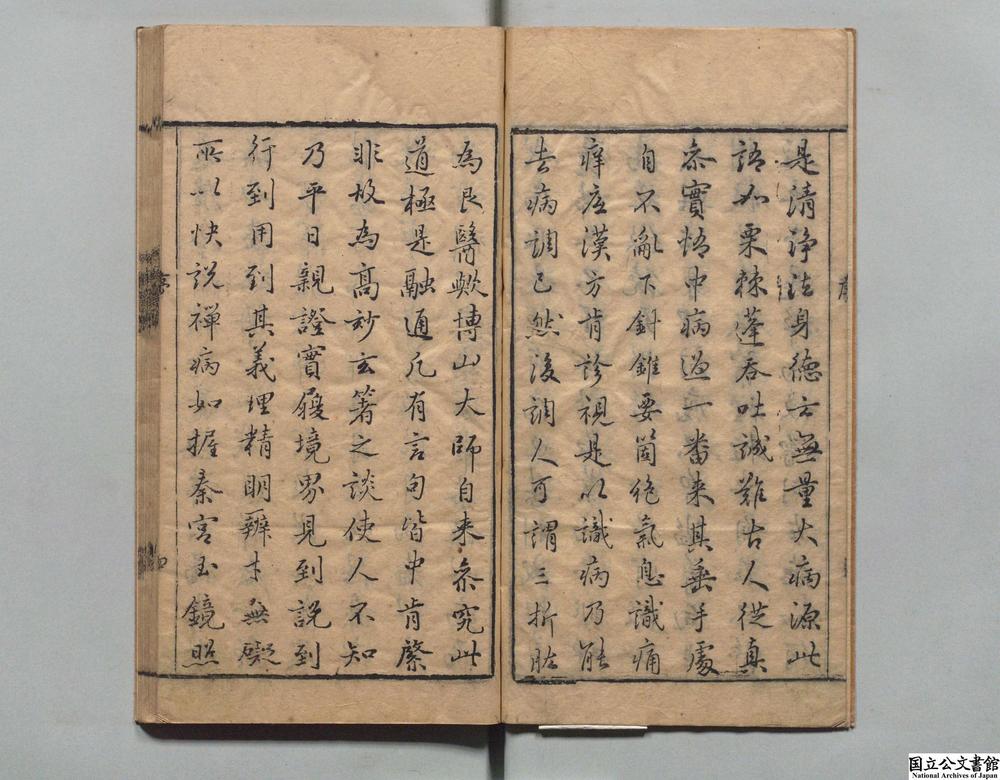 是清淨法身德云無量大病源此
語如栗棘蓬吞吐誠難古人從真
叅實悟中病過一番来其垂手處
自不亂下針錐要箇絶氣息識痛
痒底漢方肯診視是以識病乃能
去病調己然後調人可謂三折肱
為良醫歟博山大師自来叅究此
道極是融通凡有言句皆中肯綮
非故為高妙玄著之談使人不知
乃平日親證實履境界見到説到
行到用到其義理精明辨才無礙
所以快説禪病如握秦宮玉鏡照
序
四
国立公文書館
National Archives of Japan